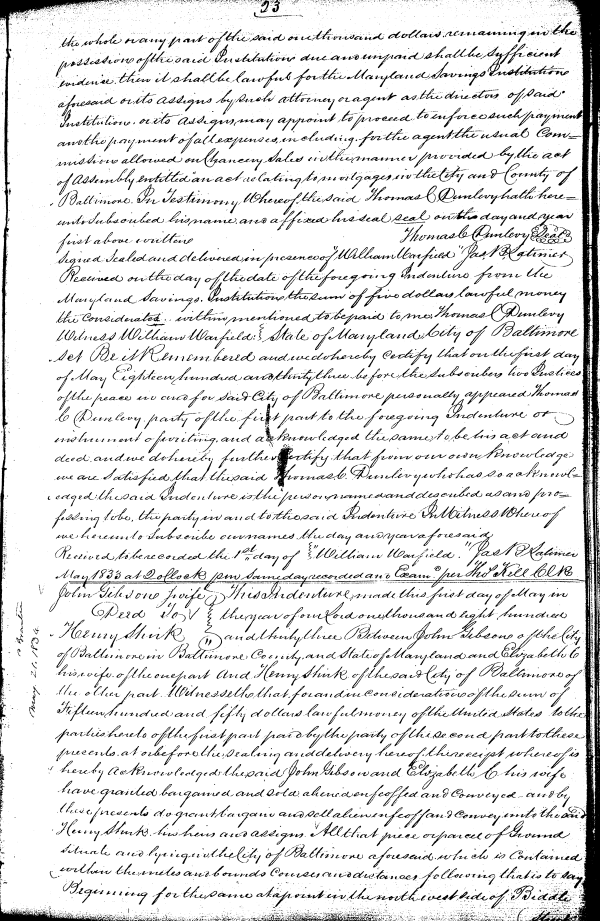 53
the whole or any part of the said one thousand dollars remaining in the
possession of the said Institution due and unpaid shall be sufficient
evidence then it shall be lawful for the Maryland Savings Institution
aforesaid or its assigns by such attorney or agent as the directors of said
Institution or its Assigns, may appoint to proceed to enforce such payment
and the payment of all expenses, including for the agent the usual Com=
mission allowed on Chancery Sales in the manner provided by the act
of Assembly entitled an act relating to mortgages in the City and County of
Baltimore In Testimony Whereof the said Thomas C Dunlevy hath here=
unto Subscribed his name and affixed his seal seal on the day and year
first above written Thomas C Dunlevy Seal
Signed Sealed and delivered in presence of "William Warfield" "Jas R Latimer
Received on the day of the date of the foregoing Indenture from the
Maryland Savings Institution the sum of five dollars lawful money
the Considerate within mentioned to be paid to me Thomas C Dunlevy
Witness William Warfield: State of Maryland City of Baltimore
set Be it Remembered and we do hereby certify that on the first day
of May Eighteen hundred and thirty three before the Subscribers two Justices
of the peace in and for said City of Baltimore personally appeared Thomas
C Dunlevy party of the first part to the foregoing Indenture or
instrument of writing and acknowledged the same to be his act and
deed and we do hereby further Certify that from our own knowledge
we are satisfied that the said Thomas C Dunlevy who has so acknowl=
edged the said Indenture is the person named and described as and pro=
fessing to be, the party in and to the said Indenture In Witness Whereof
we hereunto Subscribe our names the day and year aforesaid
Received to be recorded the 1st day of "William Warfield." "Jas R Latimer
May 1833 at 2 oclock pm Same day recorded and Exam.d per Thos Kell Clk
John Gibson & wife This Indenture made this first day of May in
Deed To the year of our Lord one thousand eight hundred
Henry Shirk and thirty three Between John Gibson of the City
of Baltimore in Baltimore County and State of Maryland and Elizabeth C
his wife of the one part and Henry Shirk of the said City of Baltimore of
the other part. Witnesseth that for and in consideration of the sum of
Fifteen hundred and fifty dollars lawful money of the United States to the
parties hereto of the first part paid by the party of the second part to these
presents at or before the sealing and delivery hereof the receipt whereof is
hereby Acknowledged the said John Gibson and Elizabeth C his wife
have granted bargained and sold aliened enfeoffed and Conveyed and by
these presents do grant bargain and sell alien enfeoff and Convey unto the said
Henry Shirk his heirs and assigns All that piece or parcel of Ground
Situate and lying in the City of Baltimore aforesaid which is Contained
within the metes and bounds Courses and distances following that is to say
Beginning for the same at a point in the north west side of Biddle
May 21. 1834